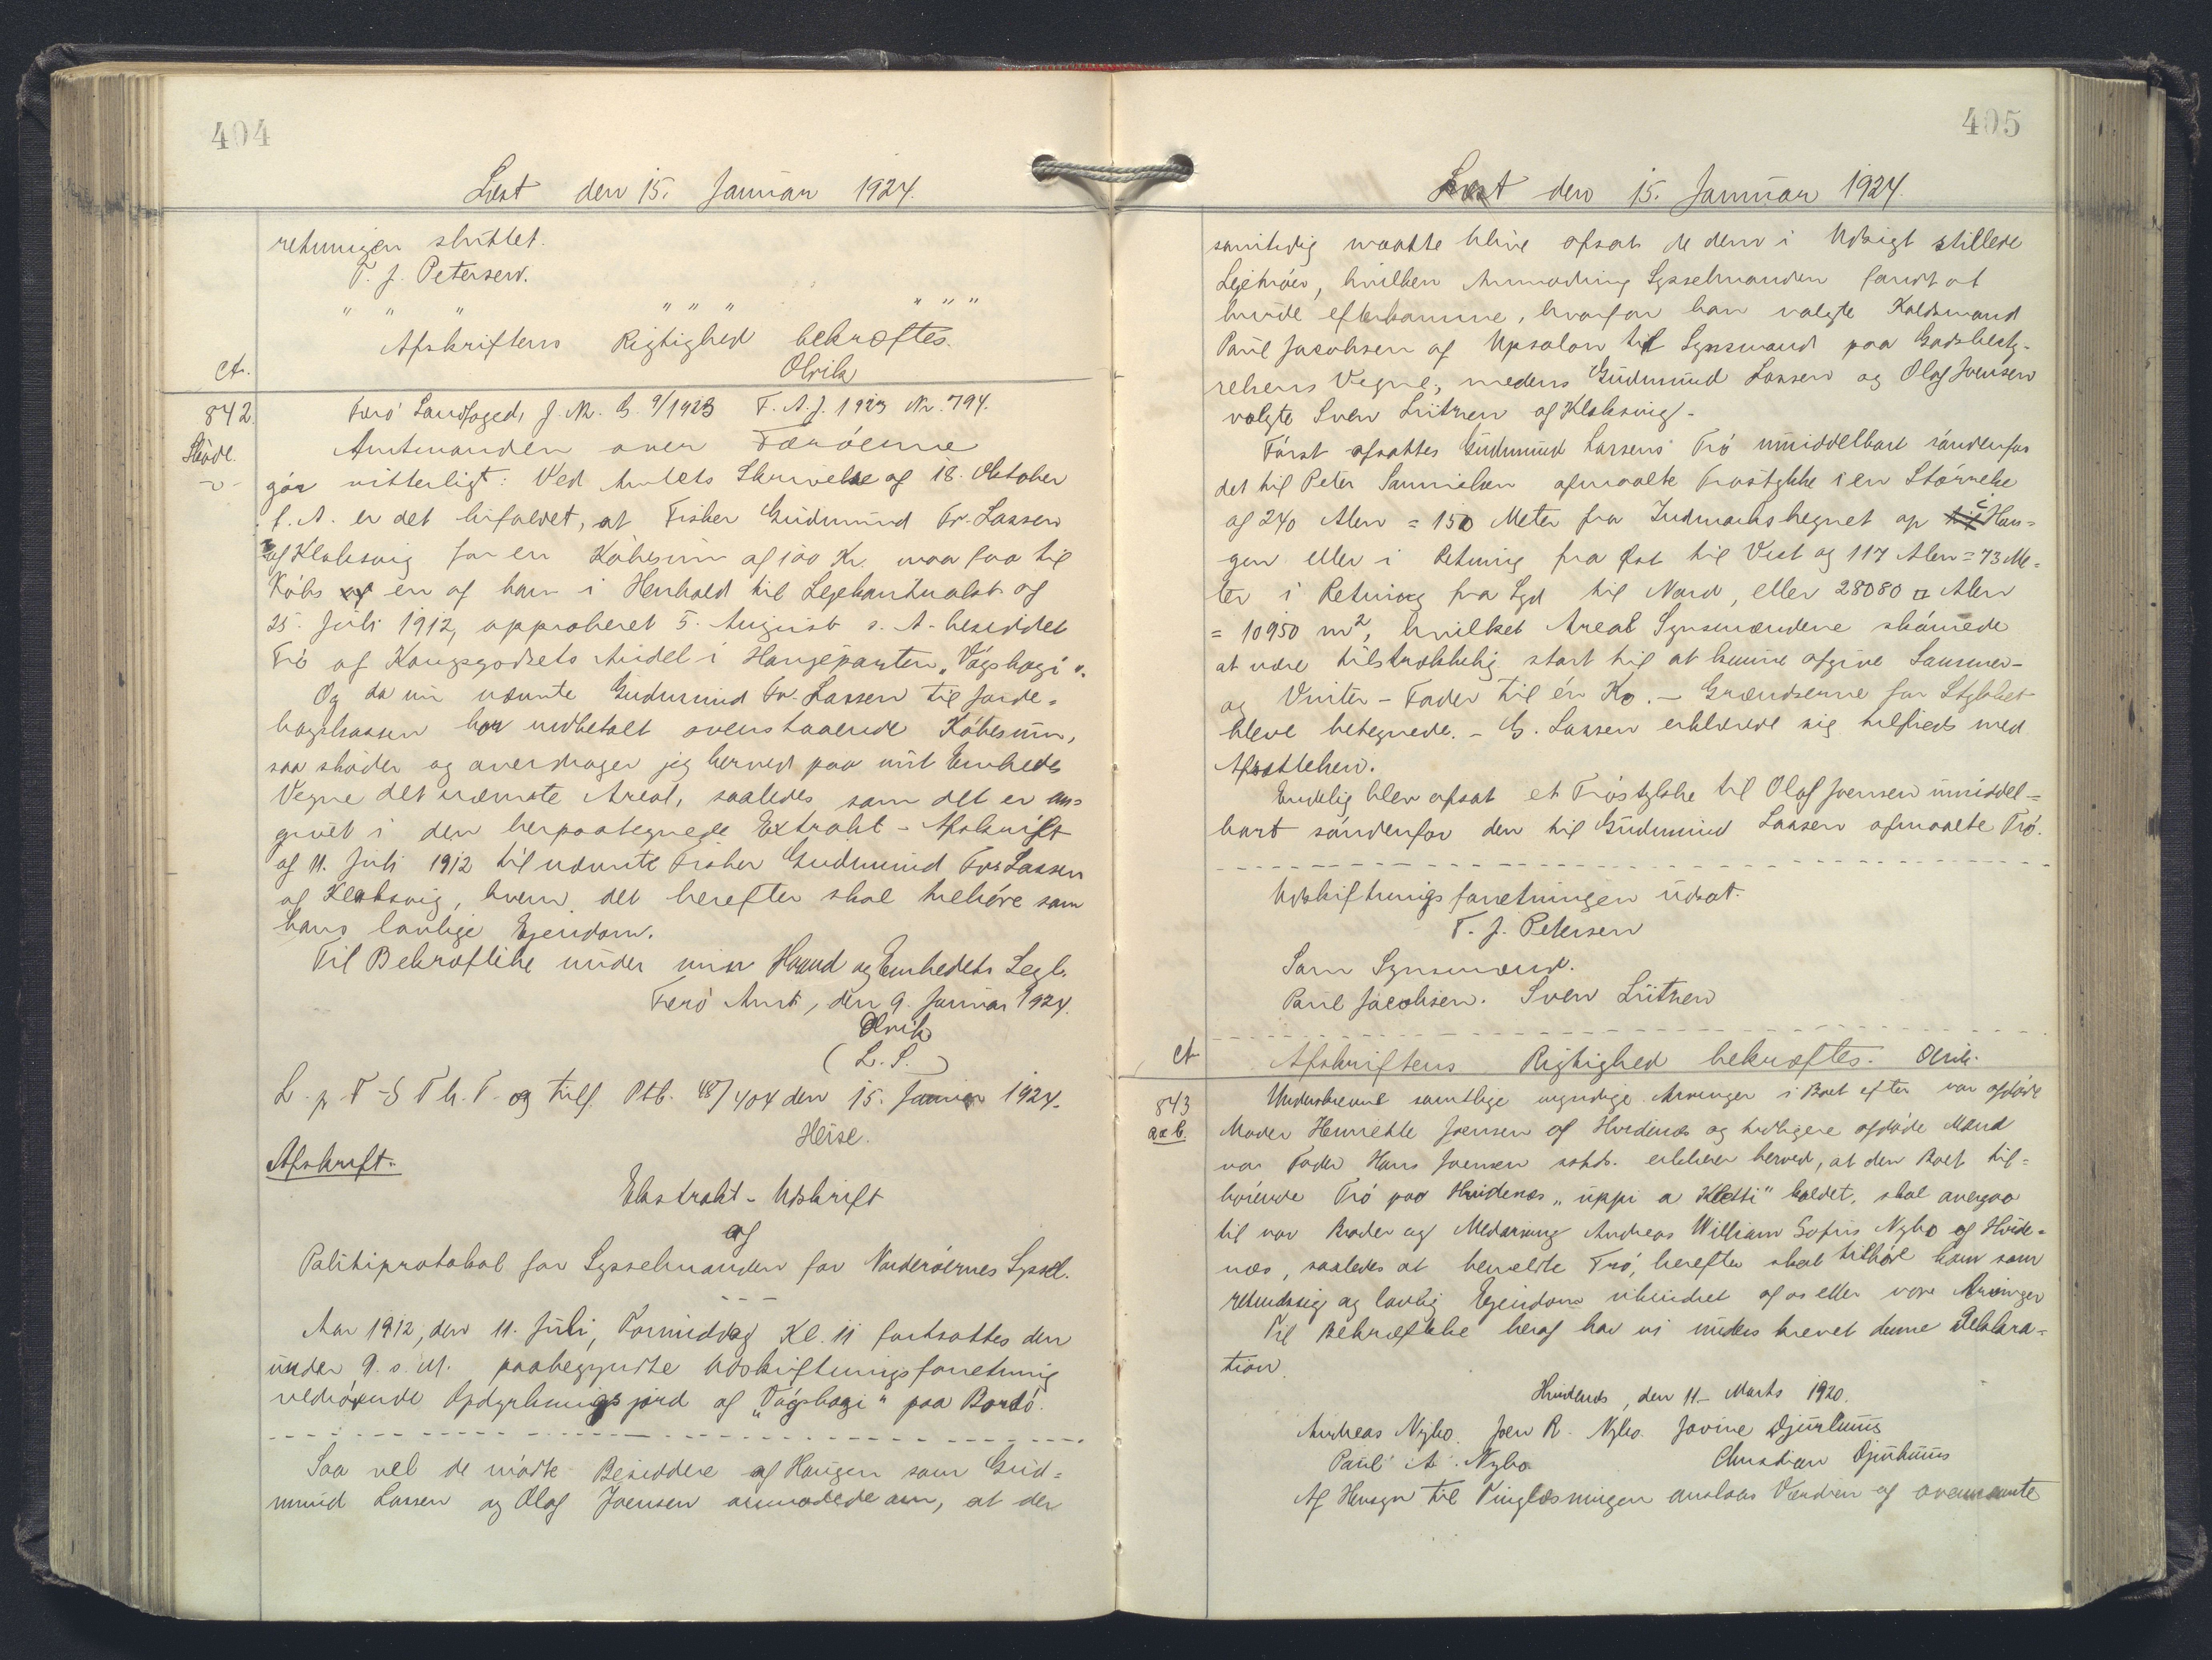 404
Læst den 15. Januar 1924.
retningen sluttet.
T. J. Petersen.
" " " " " " " " "
Afskriftens Rigtighed bekræftes.
Olrik
ct.
842.
Skøde.
Færø Landfoged, J. Nr. B. 9/1923 F. A. J. 1923 Nr. 794.
Amtmanden over Færøerne
gør vitterligt: Ved Amtets Skrivelse af 18. Oktober
f. A. er det bifaldet, at Fisker Gudmund Fr. Lassen
af Klaksvig for en Købesum af 100 Kr. maa faa til
Købs en af ham i Henhold til Lejekontrakt af
25. Juli 1912, approberet 5. August s. A. besiddet
Trø af Kongsgodsets Andel i Haugeparten „Vágshagi".
Og da nu nævnte Gudmund Fr. Lassen til Jorde-
bogskassen har indbetalt ovenstaaende Købesum,
saa skøder og overdrager jeg herved paa mit Embeds
Vegne det nævnte Areal, saaledes som det er an-
givet i den herpaategnede Extrakt-Afskrift
af 11. Juli 1912 til nævnte Fisker Gudmund Fr. Lassen
af Klaksvig, hvem det herefter skal tilhøre som
hans lovlige Ejendom.
Til Bekræftelse under min Haand og Embedets Segl.
Færø Amt, den 9. Januar 1924.
Olrik
(L. S.)
L. p. F-S T h. T. og tilf. Ptb. 48/404 den 15. Januar 1924.
Heise.
Afskrift.
Ekstrakt-Udskrift
af
Politiprotokol for Sysselmanden for Norderøernes Syssel.
- - -
Aar 1912, den 11. Juli, Formiddag Kl. 11 fortsattes den
under 9. s. M. paabegyndte Udskiftningsforretning
vedrørende Opdyrkningsjord af „Vágshagi" paa Bordø.
Saa vel de mødte Besiddere af Haugen som Gud-
mund Lassen og Olaf Joensen anmodede om, at der
405
Læst den 15. Januar 1924.
samtidig maatte blive afsat de dem i Udsigt stillede
Lejetrøer, hvilken Anmodning Sysselmanden fandt at
burde efterkomme, hvorfor han valgte Kaldsmand
Paul Jacobsen af Upsalon til Synsmand paa Godsbesty-
relsens Vegne, medens Gudmund Lassen og Olaf Joensen
valgte Sven Lützen af Klaksvig.
Først afsattes Gudmund Lassens Trø umiddelbart søndenfor
det til Peter Samuelsen afmaalte Trøstykke i en Størrelse
af 240 Alen = 150 Meter fra Indmarkshegnet op i Hau-
gen eller i Retning fra Øst til Vest og 117 Alen = 73 Me-
ter i Retning fra Syd til Nord, eller 28080 □ Alen
= 10950 m², hvilket Areal Synsmændene skønnede
at være tilstrækkelig stort til at kunne afgive Sommer-
og Vinter-Foder til én Ko. - Grændserne for Stykket
bleve betegnede. - G. Lassen erklærede sig tilfreds med
Afsættelsen.
Endelig blev afsat et Trøstykke til Olaf Joensen umiddel-
bart søndenfor den til Gudmund Lassen afmaalte Trø.
Udskiftningsforretningen udsat.
T. J. Petersen
Som Synsmænd.
Paul Jacobsen. Sven Lützen
ct
Afskriftens Rigtighed bekræftes. Olrik.
843
Underskrevne samtlige myndige Arvinger i Boet efter vor afdøde
Moder Henriette Joensen af Hvidenæs og tidligere afdøde Mand
vor Fader Hans Joensen sstds. erklærer herved, at den Boet til-
hørende Trø paa Hvidenæs „uppi a Kletti" kaldet, skal overgaa
til vor Broder og Medarving Andreas William Sofus Nybo af Hvide-
næs, saaledes at bemeldte Trø, herefter skal tilhøre ham som
retmæssig og lovlig Ejendom uhindret af os eller vore Arvinger
Til Bekræftelse heraf har vi underskrevet denne Deklara-
tion.
Hvidenæs, den 11. Marts 1920.
Andreas Nybo. Joen R. Nybo. Jovine Djurhuus
Paul A. Nybo Christian Djurhuus
Af Hensyn til Tinglæsningen anslaas Værdien af ovennævnte